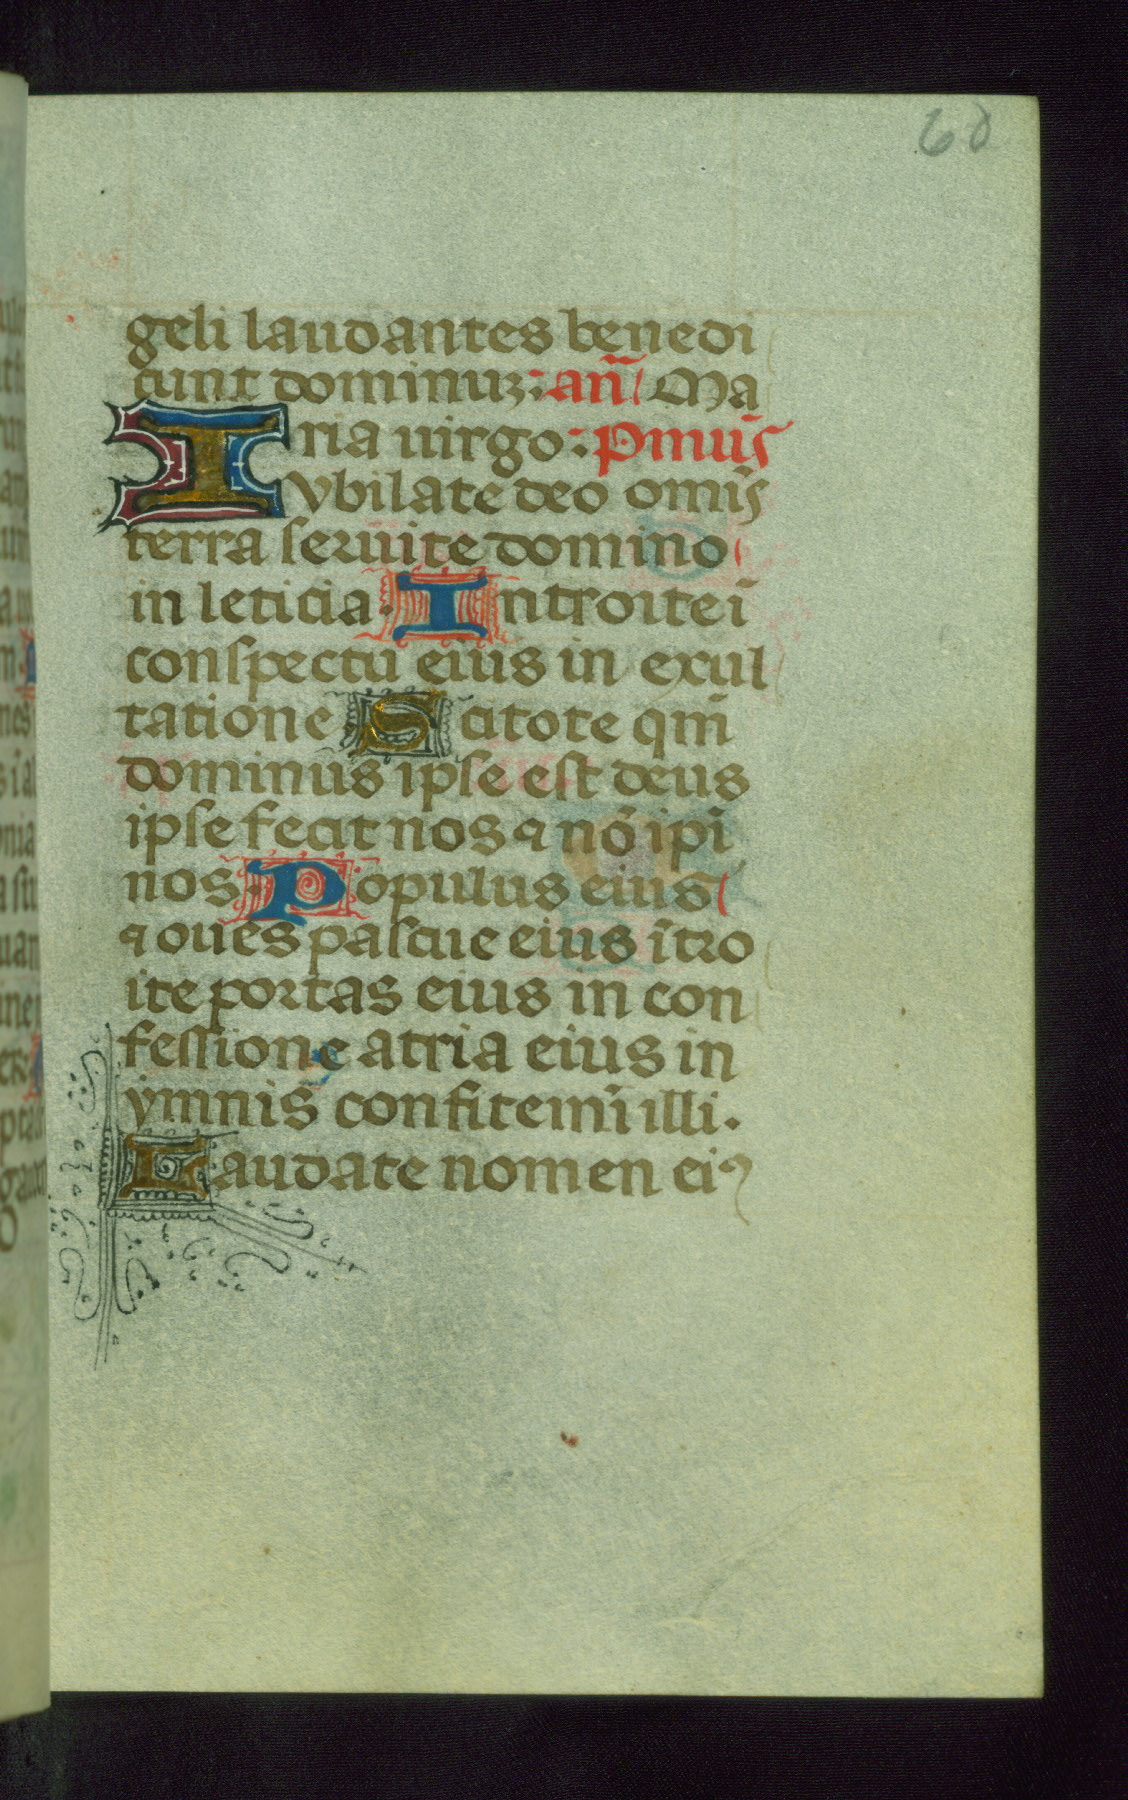 60
geli laudantes benedi
cunt dominuz: an̄ Ma
ria uirgo: pmūs
Ivbilate deo omīs
terra seruite domino
in leticia. Introite ī
conspectu eius in exul
tatione Scitote qm̄
dominus ipse est deus
ipse fecit nos ⁊ nō ipī
nos. Populus eius
⁊ oues pascue eius ītro
ite portas eius in con
fessione atria eius in
ymnis confitemī illi.
Laudate nomen eiꝰ